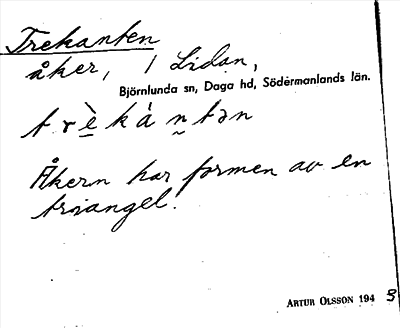 Trekanten
åker, / Lidan,
Björnlunda sn, Daga hd, Södermanlands län.
t r è̲ k à n̰ t ə n
Åkern har formen av en
triangel.
ARTUR OLSSON 194 3